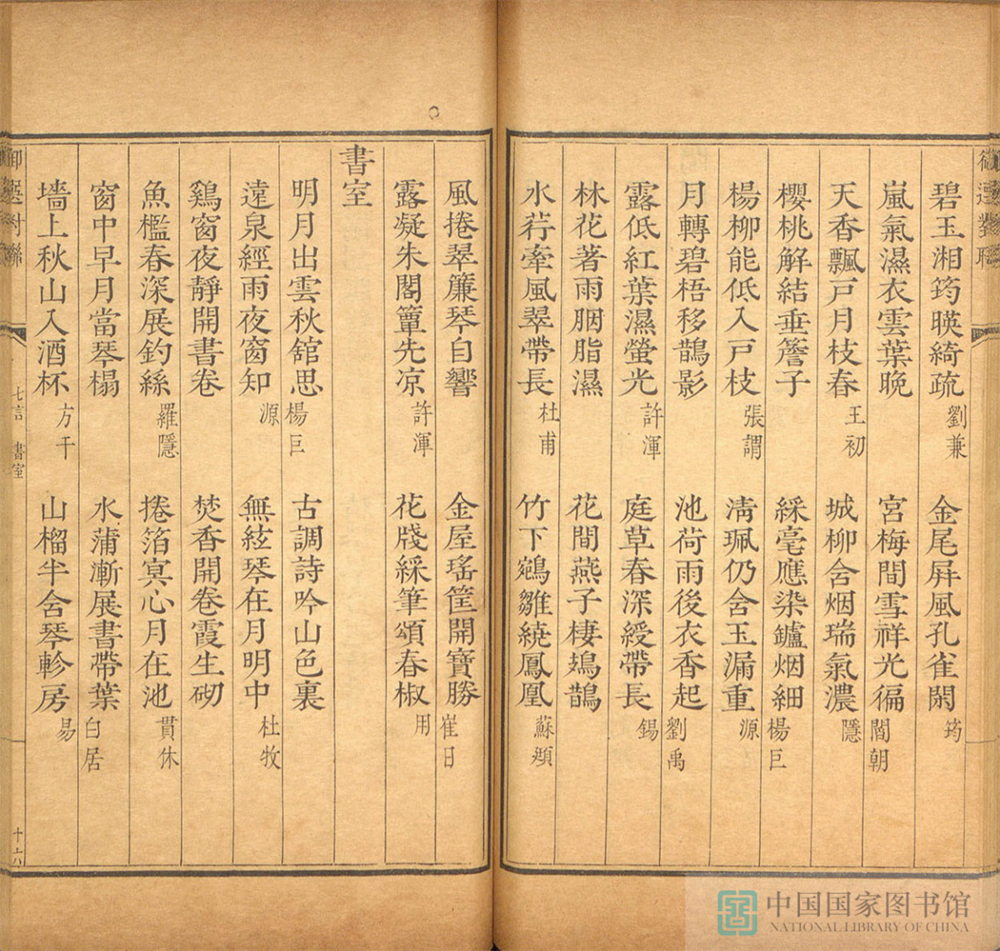 御選對聯
碧玉湘筠暎綺疏 劉兼 金尾屏風孔雀閑 筠
嵐氣濕衣雲葉晚 宮梅間雪祥光徧 閻朝隱
天香飄戸月枝春 王初 城柳含烟瑞氣濃
櫻桃解結垂簷子 綵毫應染鑪烟細 楊巨源
楊柳能低入戸枝 張謂 淸珮仍含玉漏重
月轉碧梧移鵲影 池荷雨後衣香起 劉禹錫
露低紅葉濕螢光 許渾 庭草春深綬帶長
林花著雨胭脂濕 花間燕子棲鳷鵲
水荇牽風翠帶長 杜甫 竹下鵷雛繞鳳凰 蘇頲
風捲翠簾琴自響 金屋瑤筐開寶勝 崔日用
露凝朱閣簟先凉 許渾 花牋綵筆頌春椒
書室
明月出雲秋舘思 楊巨源 古調詩吟山色裏
遠泉經雨夜窗知 無絃琴在月明中 杜牧
鷄窗夜靜開書卷 焚香開卷霞生砌
魚檻春深展釣絲 羅隱 捲箔冥心月在池 貫休
窗中早月當琴榻 水蒲漸展書帶葉 白居易
墻上秋山入酒杯 方干 山榴半含琴軫房
御選對聯 七言 書室 十六
中国国家图书馆
NATIONAL LIBRARY OF CHINA